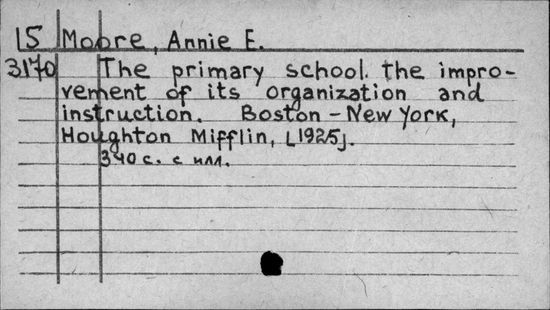 15 Moore, Annie E.
3170 The primary school. the impro-
vement of its organization and
instruction. Boston - New York,
Houghton Mifflin, [1925].
340 с. с илл.